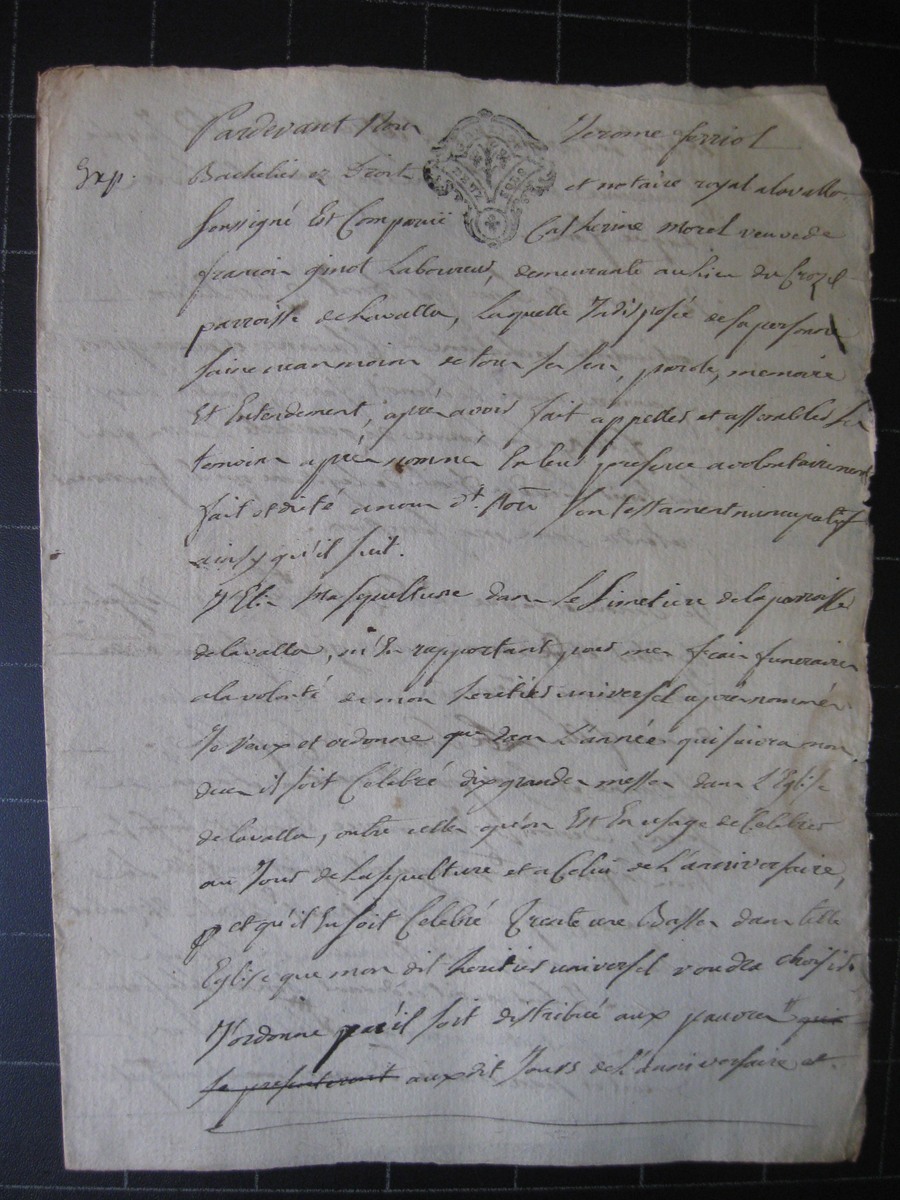 Pardevant Nous Jerome ferriol
Exp.
Bachelier ez Droit et notaire royal a lavalla
soussigné Est Comparüe Catherine morel veuve de
francois ginot Laboureur, demeurante au lieu du Crozel
parroisse de Lavalla, Laquelle Indisposée de sa personne
saine neanmoins de tous ses sens, parole, memoire
Et Entendement, après avoir fait appeller et assembler les
temoins après nommés En leur presence a volontairement
fait et dicté a nous dt. Nore son testament nuncupatif
ainsy qu'il suit.
J'Elis ma sepulture dans le Simetiere de la parroisse
de lavalla, m'En rapportant pour mes frais funeraires
a la volonté de mon heritier universel après nommé.
Je Veux et ordonne que dans L'année qui suivra mon
deces il soit Célébré dix grandes messes dans L'Eglise
de lavalla, outre celles qu'on Est En usage de Celebrer
au Jour de la sepulture et a Celui de L'anniversaire,
et qu'il En soit Celebré Trente une Basses dans telle
Eglise que mon dit heritier universel voudra choisir.
J'ordonne qu'il soit distribué aux pauvres qui
se presenteront auxdit Jours de L'anniversaire et